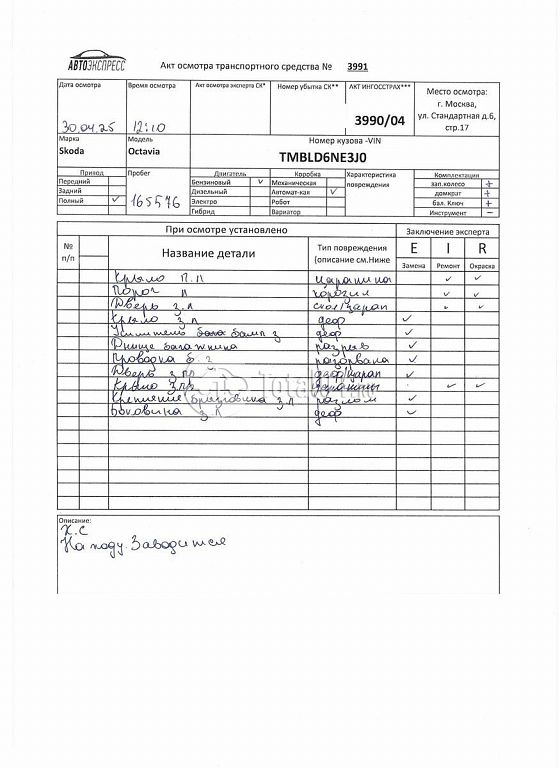 АВТОЭКСПРЕСС
Акт осмотра транспортного средства № 3991
Дата осмотра Время осмотра Акт осмотра эксперта СК* Номер убытка СК** АКТ ИНГОССТРАХ*** Место осмотра:
г. Москва,
ул. Стандартная д.6,
стр.17
30.04.25 12:10 3990/04
Марка Модель Номер кузова -VIN
Skoda Octavia TMBLD6NE3J0
Привод Пробег Двигатель Коробка Характеристика повреждения Комплектация
Передний Бензиновый ✓ Механическая зап.колесо +
Задний Дизельный Автомат-кая ✓ домкрат +
Полный ✓ 165576 Электро Робот бал. Ключ +
Гибрид Вариатор Инструмент −
При осмотре установлено Заключение эксперта
№ п/п Название детали Тип повреждения (описание см.Ниже E I R
Замена Ремонт Окраска
Крыло п.л царапина ✓ ✓
Порог л ✓ ✓
Дверь з.л скол/царап ✓ ✓
Крыло з.л деф ✓
Усилитель бамп з деф ✓
Днище багажника разрыв ✓
Проводка б.з разорвана ✓
Дверь з.пр деф/царап ✓
Крыло з.пр царапины ✓ ✓
Крепление брызговика з.л разлом ✓
Боковина з.л деф ✓
Total01.ru
Описание:
Х.С
На ходу. Заводится